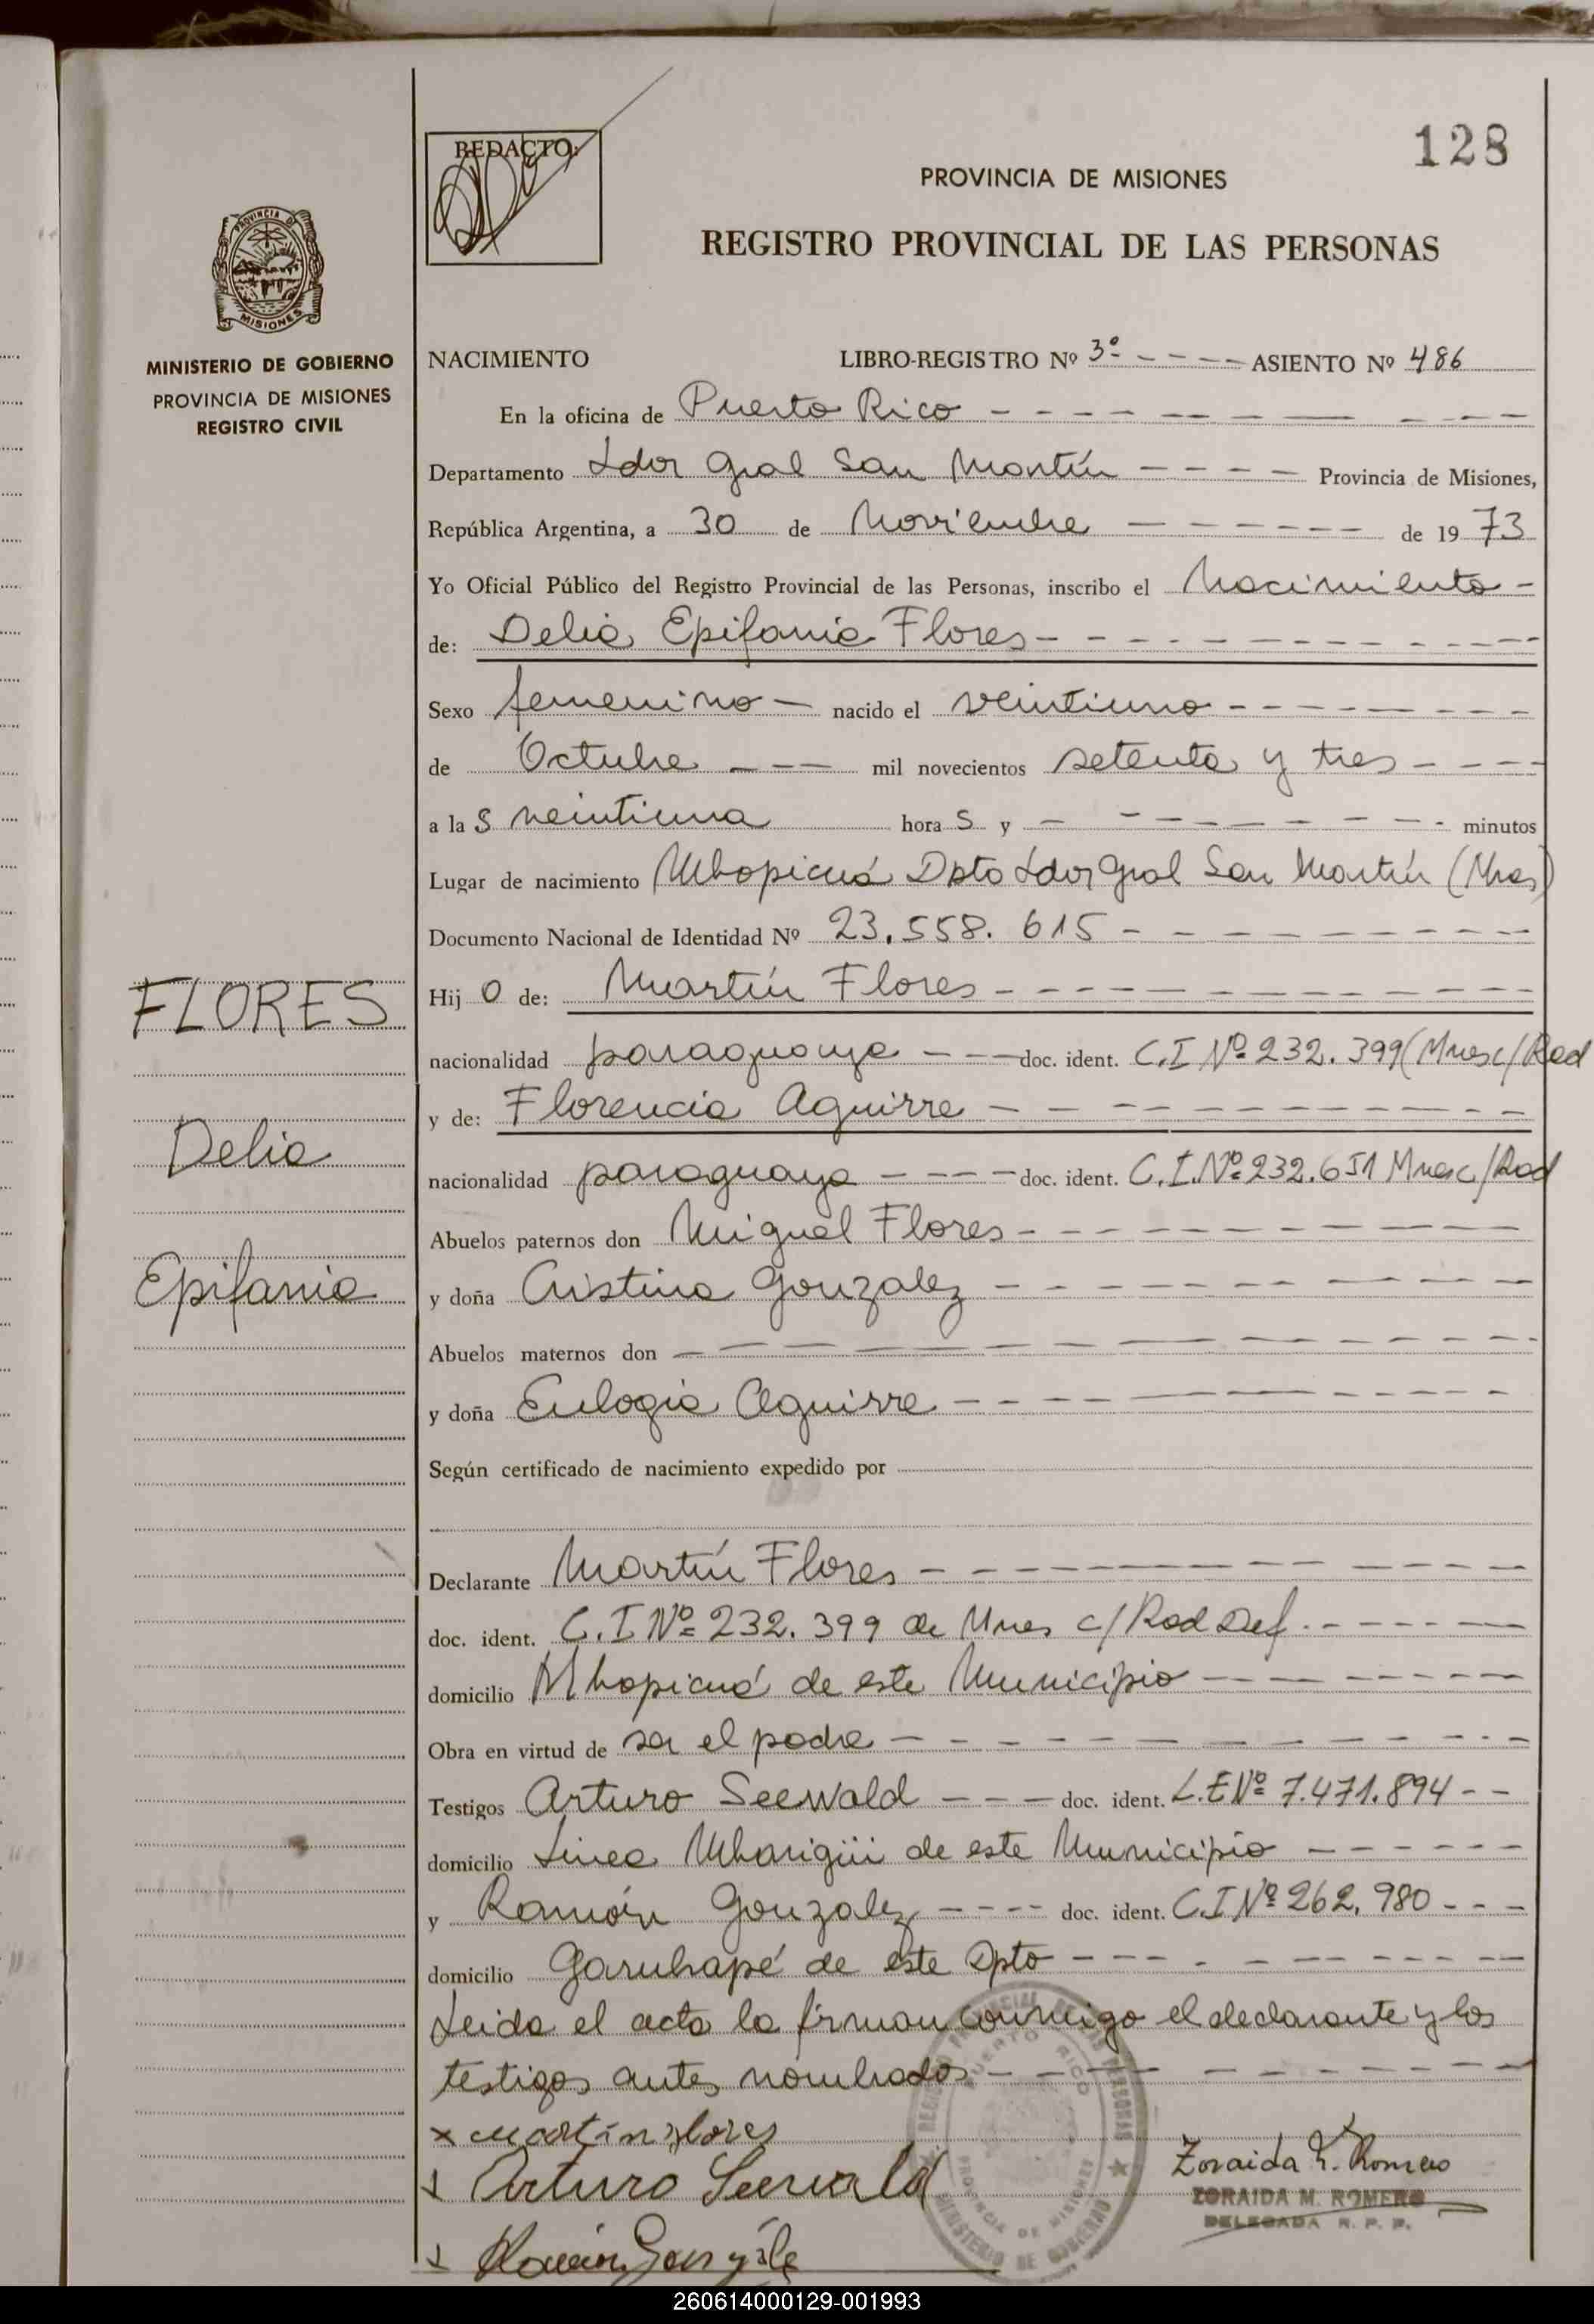 128
REDACTO:
PROVINCIA DE MISIONES
REGISTRO PROVINCIAL DE LAS PERSONAS
PROVINCIA DE
MISIONES
MINISTERIO DE GOBIERNO
PROVINCIA DE MISIONES
REGISTRO CIVIL
NACIMIENTO LIBRO-REGISTRO Nº 3º ASIENTO Nº 486
En la oficina de Puerto Rico
Departamento Ldor Gral San Martín Provincia de Misiones,
República Argentina, a 30 de Noviembre de 19 73
Yo Oficial Público del Registro Provincial de las Personas, inscribo el Nacimiento
de: Delia Epifania Flores
Sexo femenino nacido el veintiuno
de Octubre mil novecientos setenta y tres
a la s veintiuna hora s y minutos
Lugar de nacimiento Mbopicuá Dpto Ldor Gral San Martín (Mnes)
Documento Nacional de Identidad Nº 23.558.615
FLORES
Hij o de: Martín Flores
nacionalidad paraguaya doc. ident. C.I Nº 232.399 (Mnes c/Rad
y de: Florencia Aguirre
Delia
nacionalidad paraguaya doc. ident. C.I.Nº 232.651 Mnes c/Rad
Abuelos paternos don Miguel Flores
Epifania
y doña Cristina Gonzalez
Abuelos maternos don
y doña Eulogia Aguirre
Según certificado de nacimiento expedido por
Declarante Martín Flores
doc. ident. C.I Nº 232.399 de Mnes c/Rad Def.
domicilio Mbopicuá de este Municipio
Obra en virtud de ser el padre
Testigos Arturo Seewald doc. ident. L.E Nº 7.471.894
domicilio Linea Mbarigüi de este Municipio
y Ramón Gonzalez doc. ident. C.I Nº 262.980
domicilio Garuhapé de este Dpto
Leida el acta la firman conmigo el declarante y los
testigos antes nombrados
x Martín Flores
Arturo Seewald
Zoraida M. Romero
ZORAIDA M. ROMERO
DELEGADA R. P. P.
Ramón Gonzále
REGISTRO PROVINCIAL DE LAS PERSONAS
PUERTO RICO
PROVINCIA DE MISIONES
MINISTERIO DE GOBIERNO
260614000129-001993